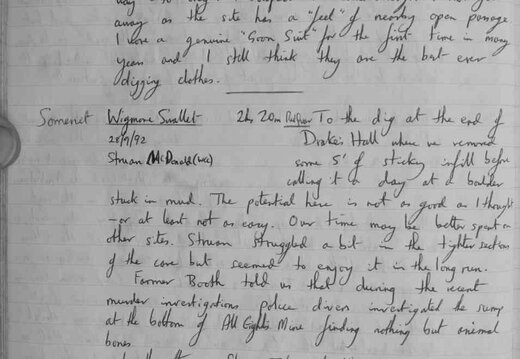 away as the site has a "feel" of nearby open passage
I wore a genuine "Goon Suit" for the first time in many
years and I still think they are the best ever
digging clothes.
Somerset Wigmore Swallet 2hrs 20m To the dig at the end of
28/9/92 Drake's Hall where we removed
Struan McDonald (WCC) some 5' of sticky infill before
calling it a day at a boulder
stuck in mud. The potential here is not as good as I thought
- or at least not as easy. Our time may be better spent on
other sites. Struan struggled a bit in the tighter sections
of the cave but seemed to enjoy it in the long run.
Farmer Booth told us that during the recent
murder investigations police divers investigated the sump
at the bottom of All Eights Mine finding nothing but animal
bones.